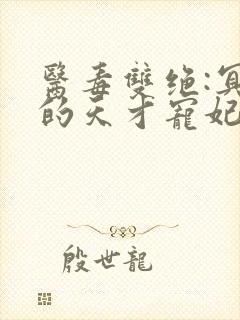 醫毒雙绝:冥
的天才寵妃
殷世龍